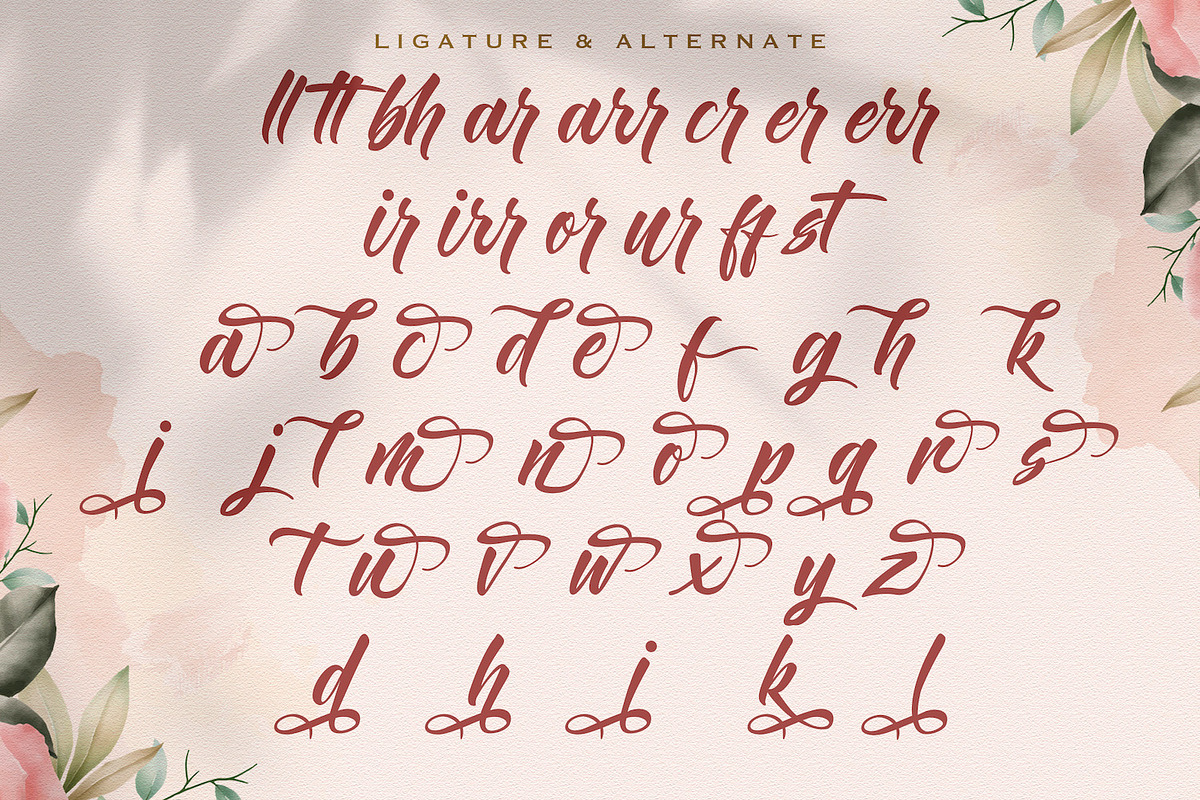 LIGATURE & ALTERNATE
ll tt bh ar arr cr er err
ir irr or ur ff st
a b c d e f g h k
i j l m n o p q r s
t u v w x y z
d h i k l